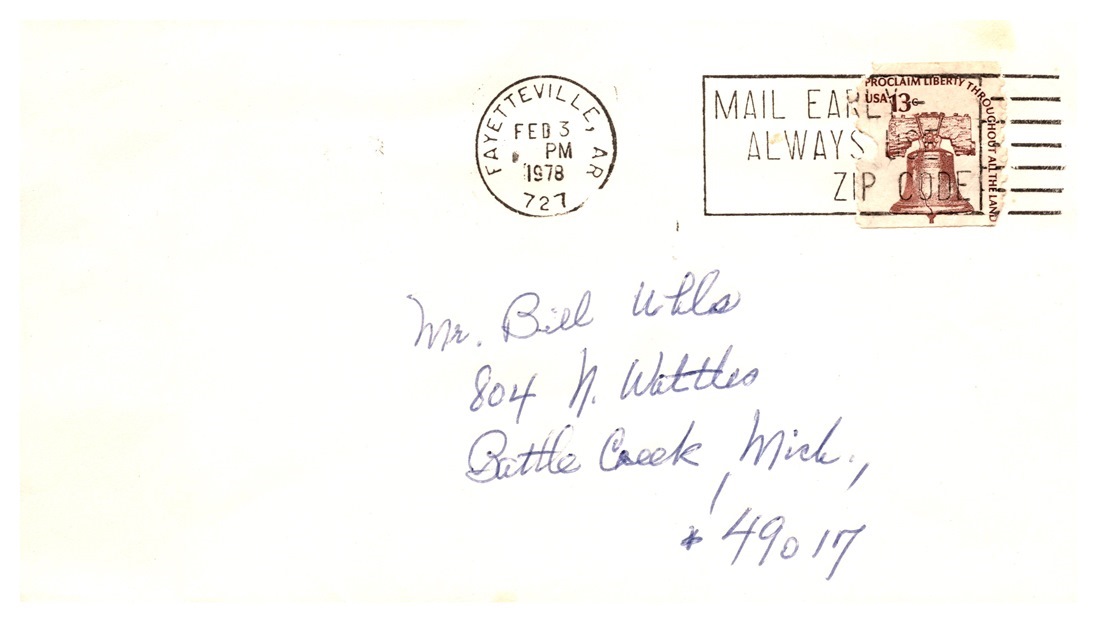 FAYETTEVILLE, AR
FEB 3
PM
1978
727
MAIL EARLY
ALWAYS
ZIP CODE
PROCLAIM LIBERTY THROUGHOUT ALL THE LAND
USA 13c
Mr. Bill Uhls
804 N. Wattles
Battle Creek, Mich.,
49017